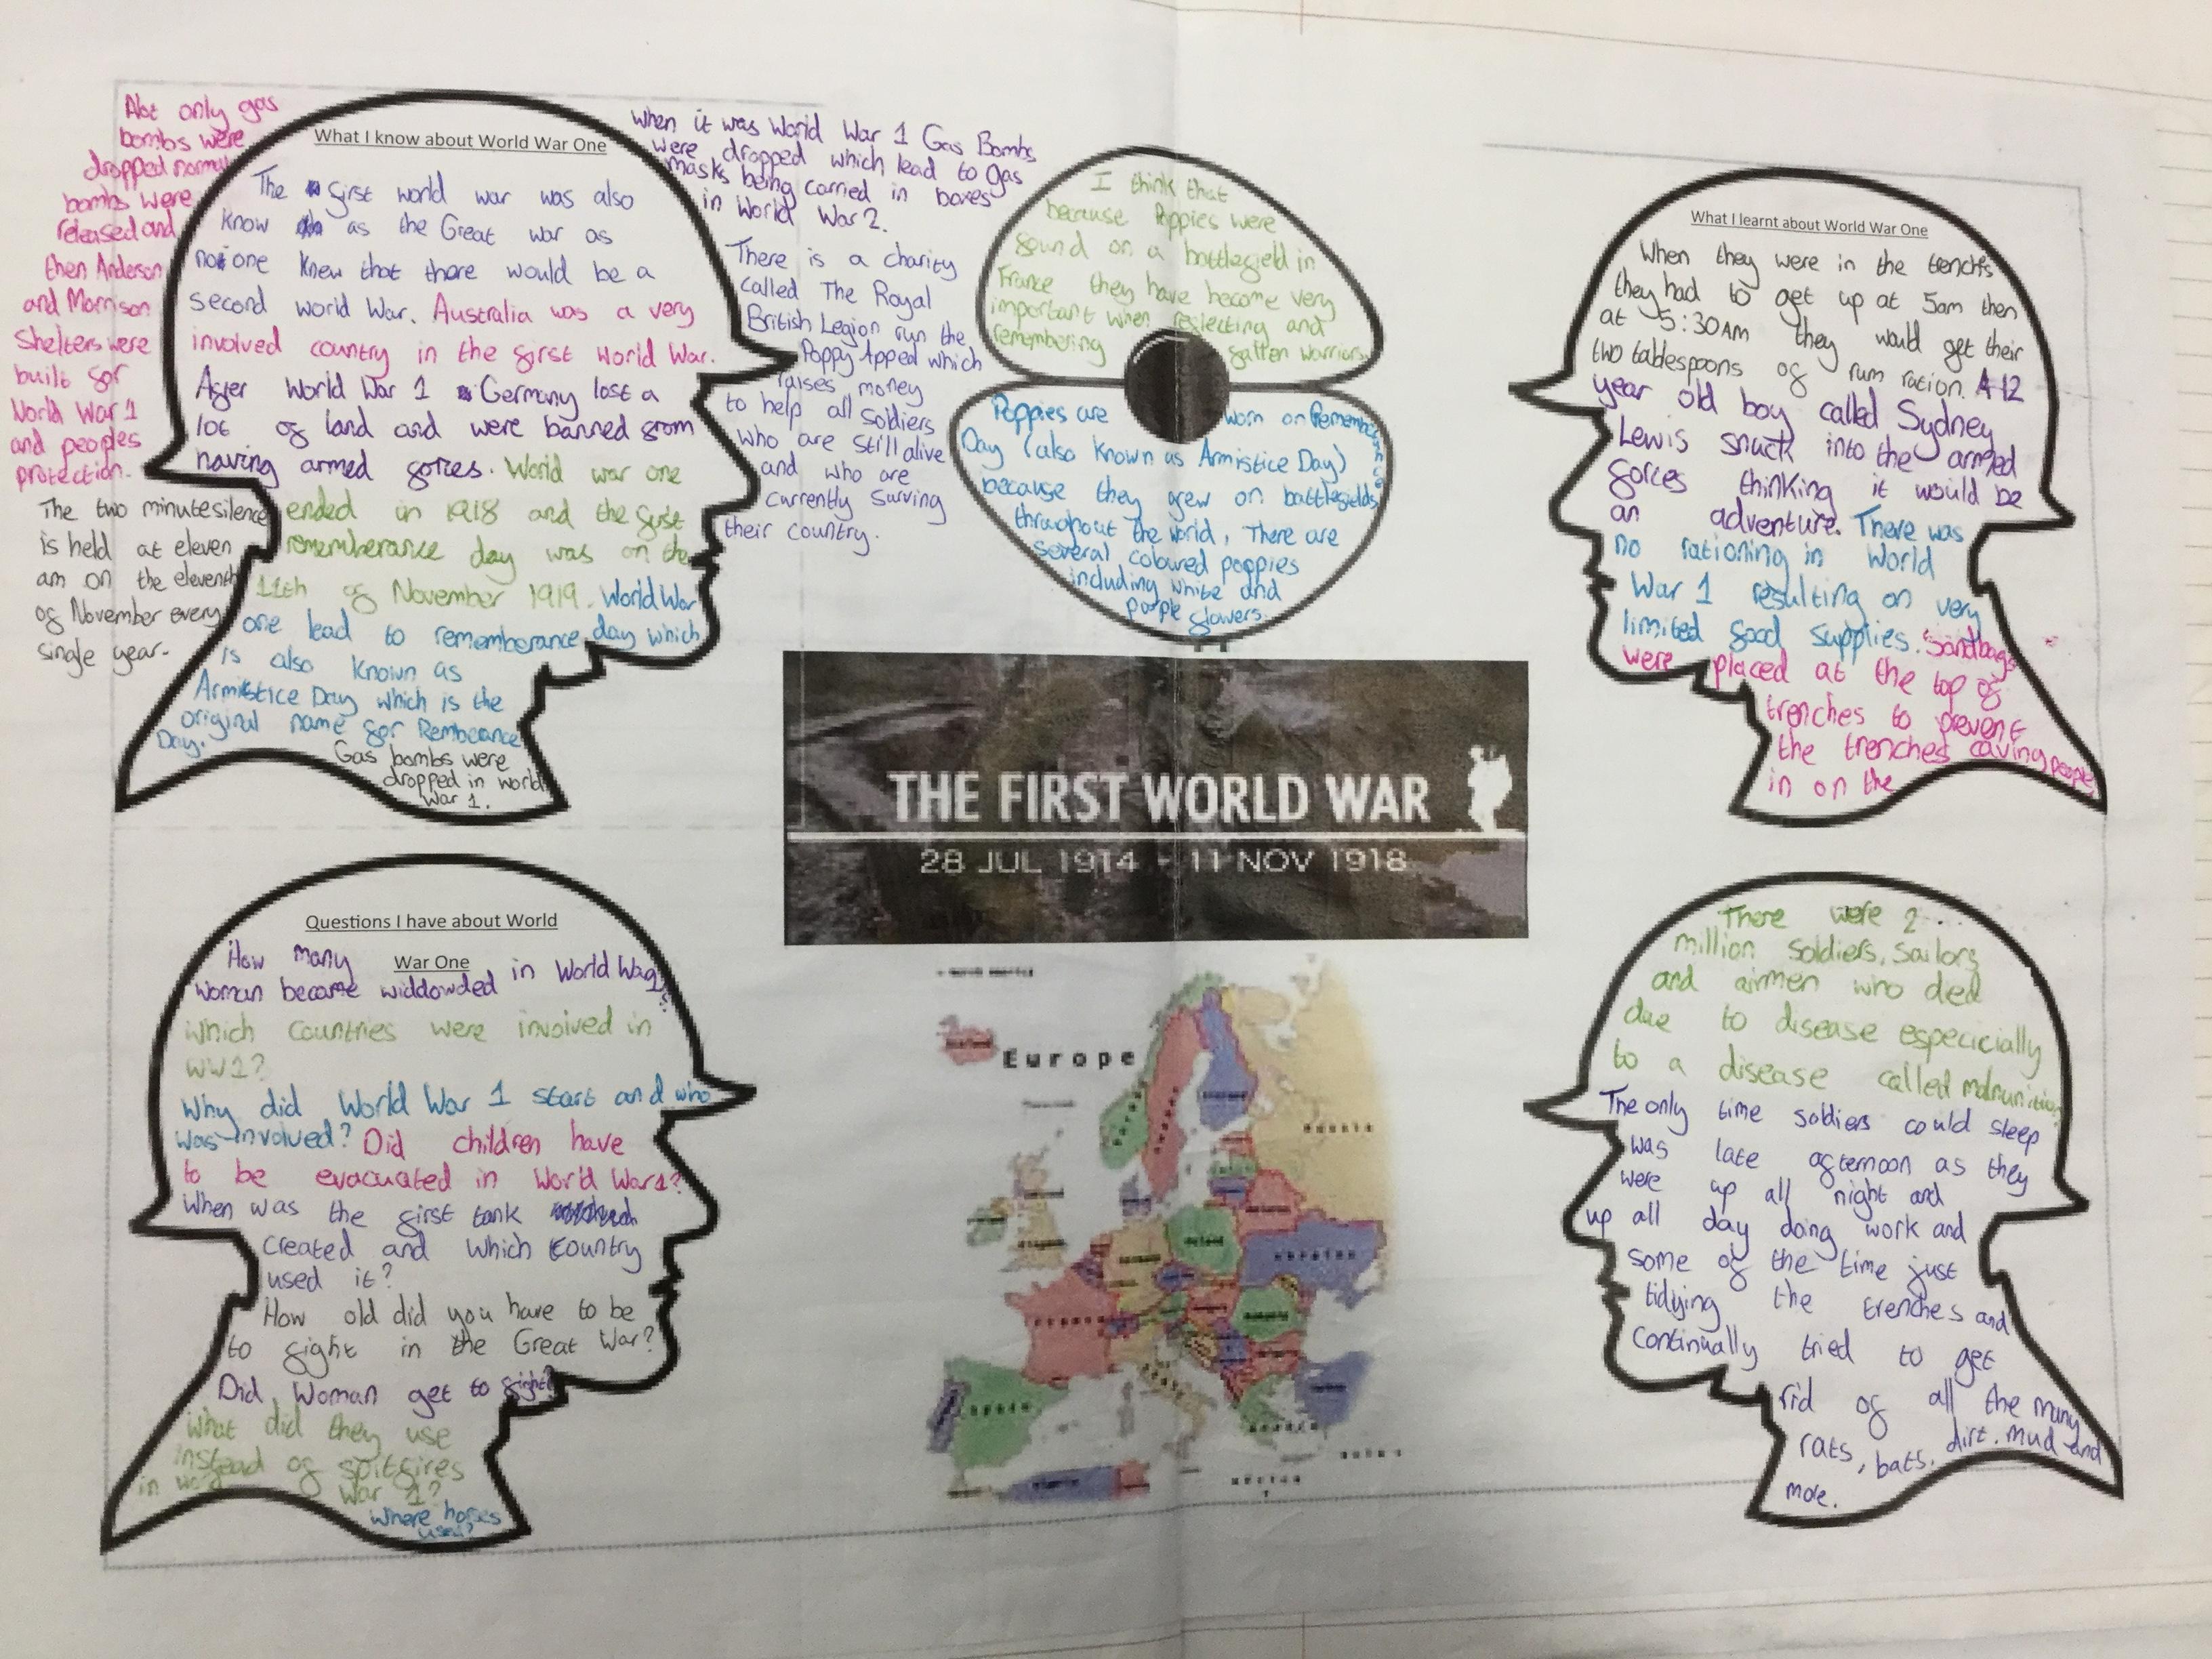 Not only gas
bombs were
dropped normal
bombs were
released and
then Anderson
and Morrison
Shelters were
built for
World War 1
and peoples
protection.
The two minute silence
is held at eleven
am on the eleventh
of November every
single year.
What I know about World War One
The first world war was also
know as the Great war as
no one knew that there would be a
second world War. Australia was a very
involved country in the first world War.
After World War 1 Germany lost a
lot of land and were banned from
having armed forces. World war one
ended in 1918 and the first
rememberance day was on the
11th of November 1919. World War
one lead to rememberance day which
is also known as
Armistice Day which is the
original name for Rembeance
Day.
Gas bombs were
dropped in world
War 1.
When it was World War 1 Gas Bombs
were dropped which lead to gas
masks being carried in boxes
in World War 2.
There is a charity
called The Royal
British Legion run the
Poppy Apped which
raises money
to help all soldiers
who are still alive
and who are
currently surving
their country.
I think that
because Poppies were
found on a battlefield in
France they have become very
important when reflecting and
remembering fallen warriors
Poppies are worn on Remembrance
Day (also known as Armistice Day)
because they grew on battlefields
throughout the world, There are
several coloured poppies
including white and
purple flowers.
What I learnt about World War One
When they were in the trenchs
they had to get up at 5am then
at 5:30AM they would get their
two tablespoons of rum ration. A 12
year old boy called Sydney
Lewis snuck into the armed
forces thinking it would be
an adventure. There was
no rationing in World
War 1 resulting on very
limited food supplies. Sandbags
were placed at the top of
trenches to prevent
the trenches caving people
in on the
THE FIRST WORLD WAR
28 JUL 1914 - 11 NOV 1918
Questions I have about World
War One
How many
woman became widdowded in World War 1?
Which countries were involved in
WW1?
Why did World War 1 start and who
was involved? Did children have
to be evacuated in World War 1?
When was the first tank
created and which country
used it?
How old did you have to be
to fight in the Great War?
Did Woman get to fight?
What did they use
instead of spitfires
in world War 1?
Where horses
used?
Europe
Russia
Ukraine
Poland
France
Spain
There were 2
million soldiers, sailors
and airmen who died
due to disease especicially
to a disease called malnunition
The only time soldiers could sleep
was late afternoon as they
were up all night and
up all day doing work and
some of the time just
tidying the trenches and
continually tried to get
rid of all the many
rats, bats, dirt, mud and
more.